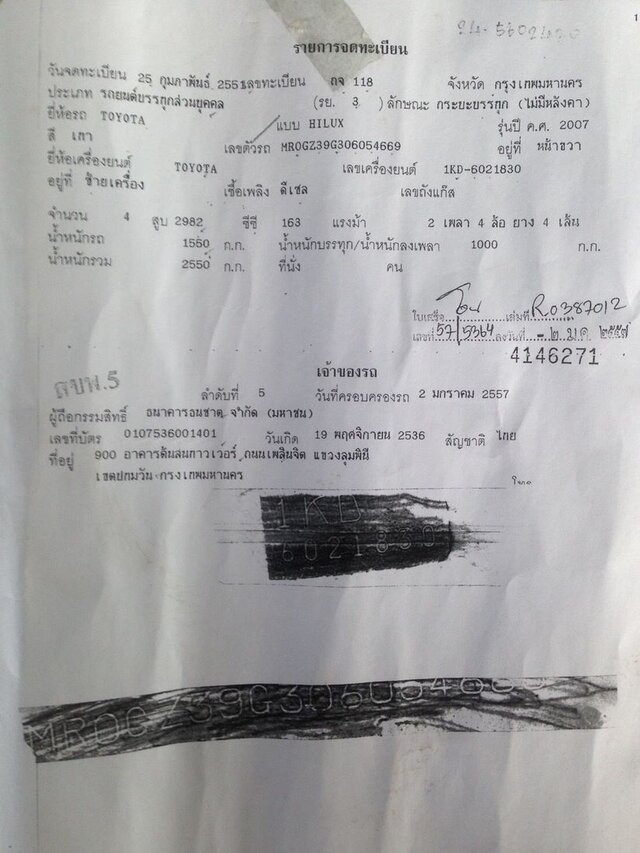 1
94-5602420
รายการจดทะเบียน
วันจดทะเบียน 25 กุมภาพันธ์ 2551 เลขทะเบียน ถจ 118 จังหวัด กรุงเทพมหานคร
ประเภท รถยนต์บรรทุกส่วนบุคคล (รย. 3 ) ลักษณะ กระบะบรรทุก (ไม่มีหลังคา)
ยี่ห้อรถ TOYOTA แบบ HILUX รุ่นปี ค.ศ. 2007
สี เทา เลขตัวรถ MROGZ39G306054669 อยู่ที่ หน้าขวา
ยี่ห้อเครื่องยนต์ TOYOTA เลขเครื่องยนต์ 1KD-6021830
อยู่ที่ ซ้ายเครื่อง เชื้อเพลิง ดีเซล เลขถังแก๊ส
จำนวน 4 สูบ 2982 ซีซี 163 แรงม้า 2 เพลา 4 ล้อ ยาง 4 เส้น
น้ำหนักรถ 1550 ก.ก. น้ำหนักบรรทุก/น้ำหนักลงเพลา 1000 ก.ก.
น้ำหนักรวม 2550 ก.ก. ที่นั่ง คน
ใบเสร็จ เล่มที่ R0387012
เลขที่ 57/5364 ลงวันที่ - ๒ ม.ค. ๒๕๕๗
4146271
เจ้าของรถ
ลำดับที่ 5 วันที่ครอบครองรถ 2 มกราคม 2557
ผู้ถือกรรมสิทธิ์ ธนาคารธนชาต จำกัด (มหาชน)
เลขที่บัตร 0107536001401 วันเกิด 19 พฤศจิกายน 2536 สัญชาติ ไทย
ที่อยู่ 900 อาคารต้นสนทาวเวอร์ ถนนเพลินจิต แขวงลุมพินี
เขตปทุมวัน กรุงเทพมหานคร
1KD
6021830
MROGZ39G3060546